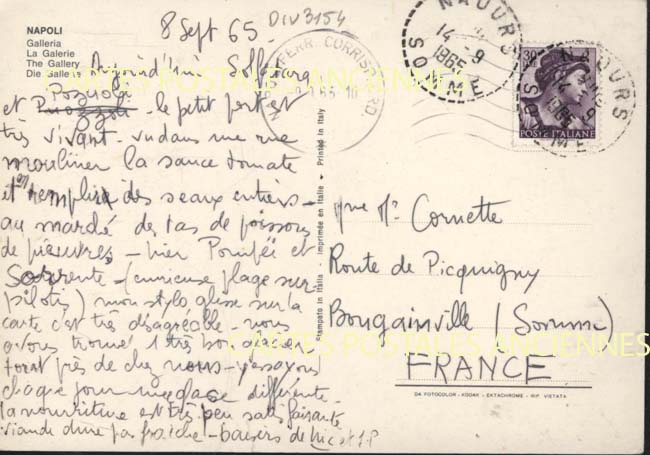 NAPOLI
Galleria
La Galerie
The Gallery
Die Galle
8 Sept 65
DIV3154
Aujourd'hui Solfatara
et Pozzuoli le petit port est
très vivant - vu dans une rue
mouliner la sauce tomate
et en remplir des seaux entiers -
au marché des tas de poissons
de pieuvres - hier Pompéï et
Sorrente - (curieuse plage sur
pilotis) mon stylo glisse sur la
carte c'est très désagréable - nous
avons trouvé 1 très bon glacier
tout près de chez nous - essayons
chaque jour une glace différente -
la nourriture est très peu satisfaisante
viande dure pas fraîche - baisers de
Stampato in Italia - Imprimée en Italie - Printed in Italy
FERR. CORRISP.
NAOURS
14 -9
1965
SOMME
30
POSTE ITALIANE
NAOURS
14 -9
1965
SOMME
Mr Cornette
Route de Picquigny
Bougainville (Somme)
FRANCE
DA FOTOCOLOR - KODAK - EKTACHROME - RIP. VIETATA
CARTES POSTALES ANCIENNES
CARTES POSTALES ANCIENNES